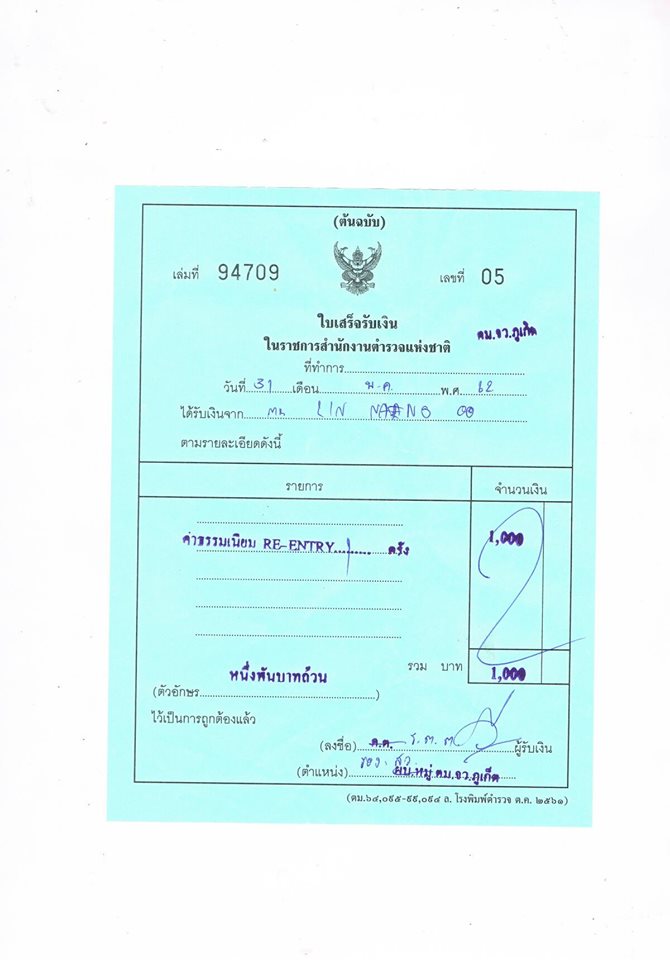 (ต้นฉบับ)
เล่มที่ 94709 เลขที่ 05
ใบเสร็จรับเงิน
ในราชการสำนักงานตำรวจแห่งชาติ ตม.จว.ภูเก็ต
ที่ทำการ
วันที่ 31 เดือน พ.ค. พ.ศ. 62
ได้รับเงินจาก LIN
ตามรายละเอียดดังนี้
รายการ จำนวนเงิน
ค่าธรรมเนียม RE-ENTRY 1 ครั้ง 1,000
รวม บาท 1,000
หนึ่งพันบาทถ้วน
(ตัวอักษร)
ไว้เป็นการถูกต้องแล้ว
(ลงชื่อ) ด.ต. ร.ต.ต ผู้รับเงิน
รอง.สว.
(ตำแหน่ง) ผบ.หมู่ ตม.จว.ภูเก็ต
(ตม.๖๔,๐๙๕-๙๙,๐๙๔ ล. โรงพิมพ์ตำรวจ ต.ค. ๒๕๖๑)